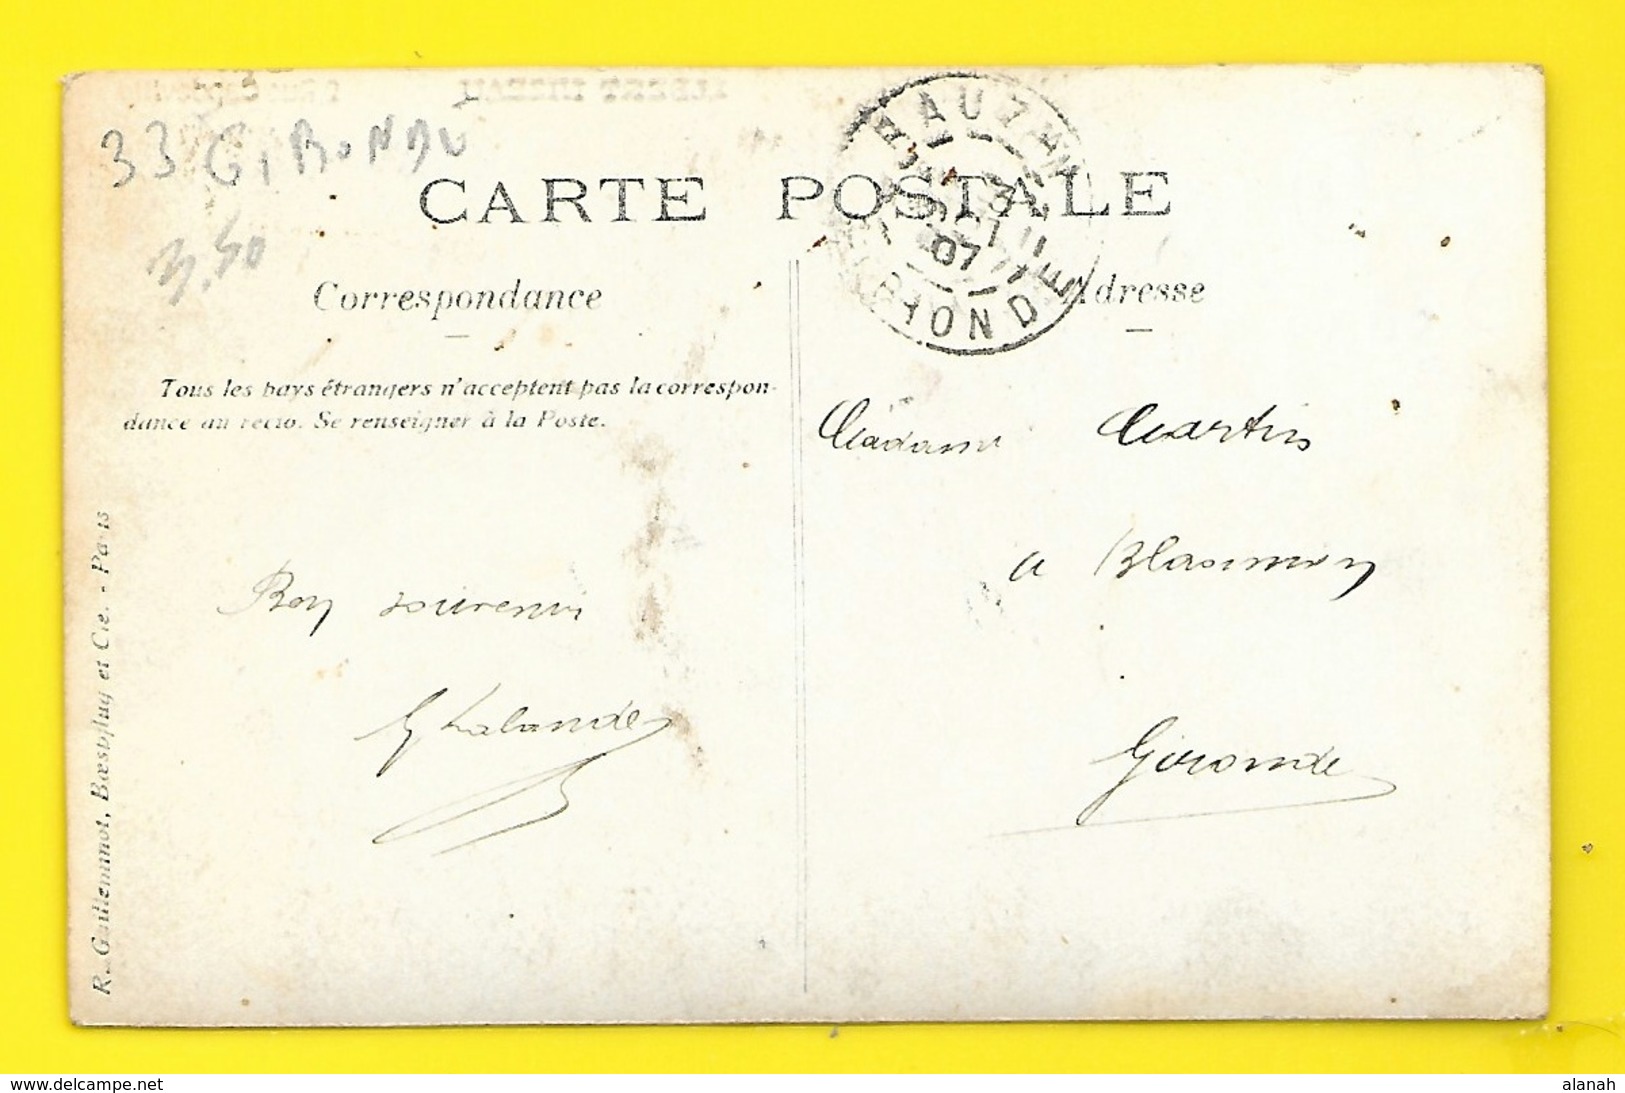 33 GIRONDE
3.50
CARTE POSTALE
RAUZAN
3
07
GIRONDE
Correspondance
Adresse
Tous les pays étrangers n'acceptent pas la correspon-
dance au recto. Se renseigner à la Poste.
R. Guilleminot, Bœspflug et Cie. - Paris
Madame Martin
a Blasimon
Gironde
Bon souvenir
G Lalande
www.delcampe.net
alanah